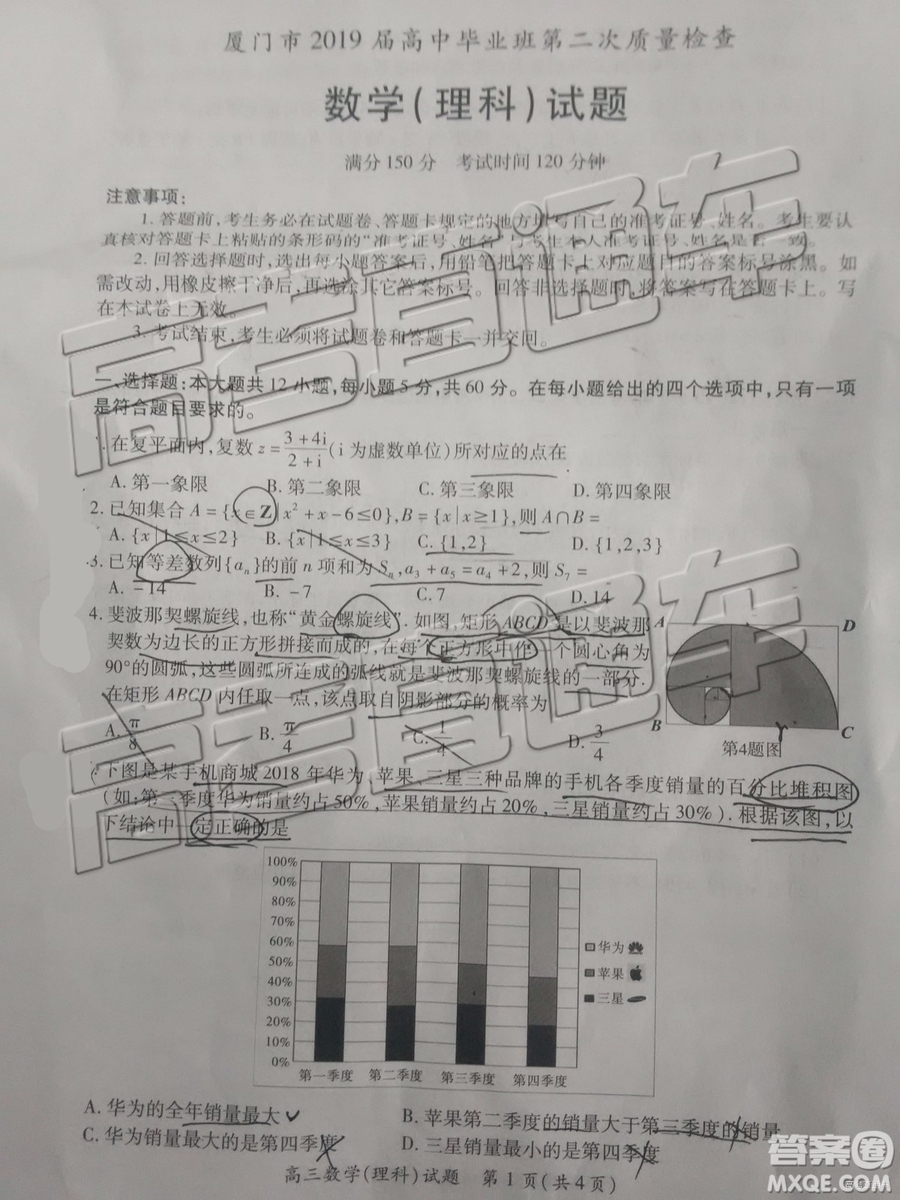 厦门市 2019 届高中毕业班第二次质量检查
数学(理科)试题
满分 150 分 考试时间 120 分钟
注意事项：
1. 答题前，考生务必在试题卷、答题卡规定的地方填写自己的准考证号、姓名。考生要认
真核对答题卡上粘贴的条形码的“准考证号、姓名”与考生本人准考证号、姓名是否一致。
2. 回答选择题时，选出每小题答案后，用铅笔把答题卡上对应题目的答案标号涂黑。如
需改动，用橡皮擦干净后，再选涂其它答案标号。回答非选择题时，将答案写在答题卡上。写
在本试卷上无效。
3. 考试结束，考生必须将试题卷和答题卡一并交回。
一、选择题：本大题共 12 小题，每小题 5 分，共 60 分。在每小题给出的四个选项中，只有一项
是符合题目要求的。
1. 在复平面内，复数 z = (3+4i)/(2+i) (i 为虚数单位)所对应的点在
A. 第一象限 B. 第二象限 C. 第三象限 D. 第四象限
2. 已知集合 A = {x∈Z | x² + x - 6≤0}, B = {x | x≥1}, 则 A∩B =
A. {x | 1≤x≤2} B. {x | 1≤x≤3} C. {1,2} D. {1,2,3}
3. 已知等差数列{aₙ}的前 n 项和为 Sₙ, a₃ + a₅ = a₄ + 2, 则 S₇ =
A. -14 B. -7 C. 7 D. 14
4. 斐波那契螺旋线，也称“黄金螺旋线”. 如图，矩形 ABCD 是以斐波那
契数为边长的正方形拼接而成的，在每个正方形中作一个圆心角为
90°的圆弧，这些圆弧所连成的弧线就是斐波那契螺旋线的一部分.
在矩形 ABCD 内任取一点，该点取自阴影部分的概率为
A. π/8 B. π/4 C. 1/4 D. 3/4
A D
B C
第4题图
下图是某手机商城 2018 年华为、苹果、三星三种品牌的手机各季度销量的百分比堆积图
(如：第三季度华为销量约占 50%，苹果销量约占 20%，三星销量约占 30%). 根据该图，以
下结论中一定正确的是
100%
90%
80%
70%
60%
50%
40%
30%
20%
10%
0%
第一季度 第二季度 第三季度 第四季度
华为
苹果
三星
A. 华为的全年销量最大 B. 苹果第二季度的销量大于第三季度的销量
C. 华为销量最大的是第四季度 D. 三星销量最小的是第四季度
高三数学(理科)试题 第 1 页(共 4 页)
高考直通车
高考直通车
答案卷
MXQE.COM